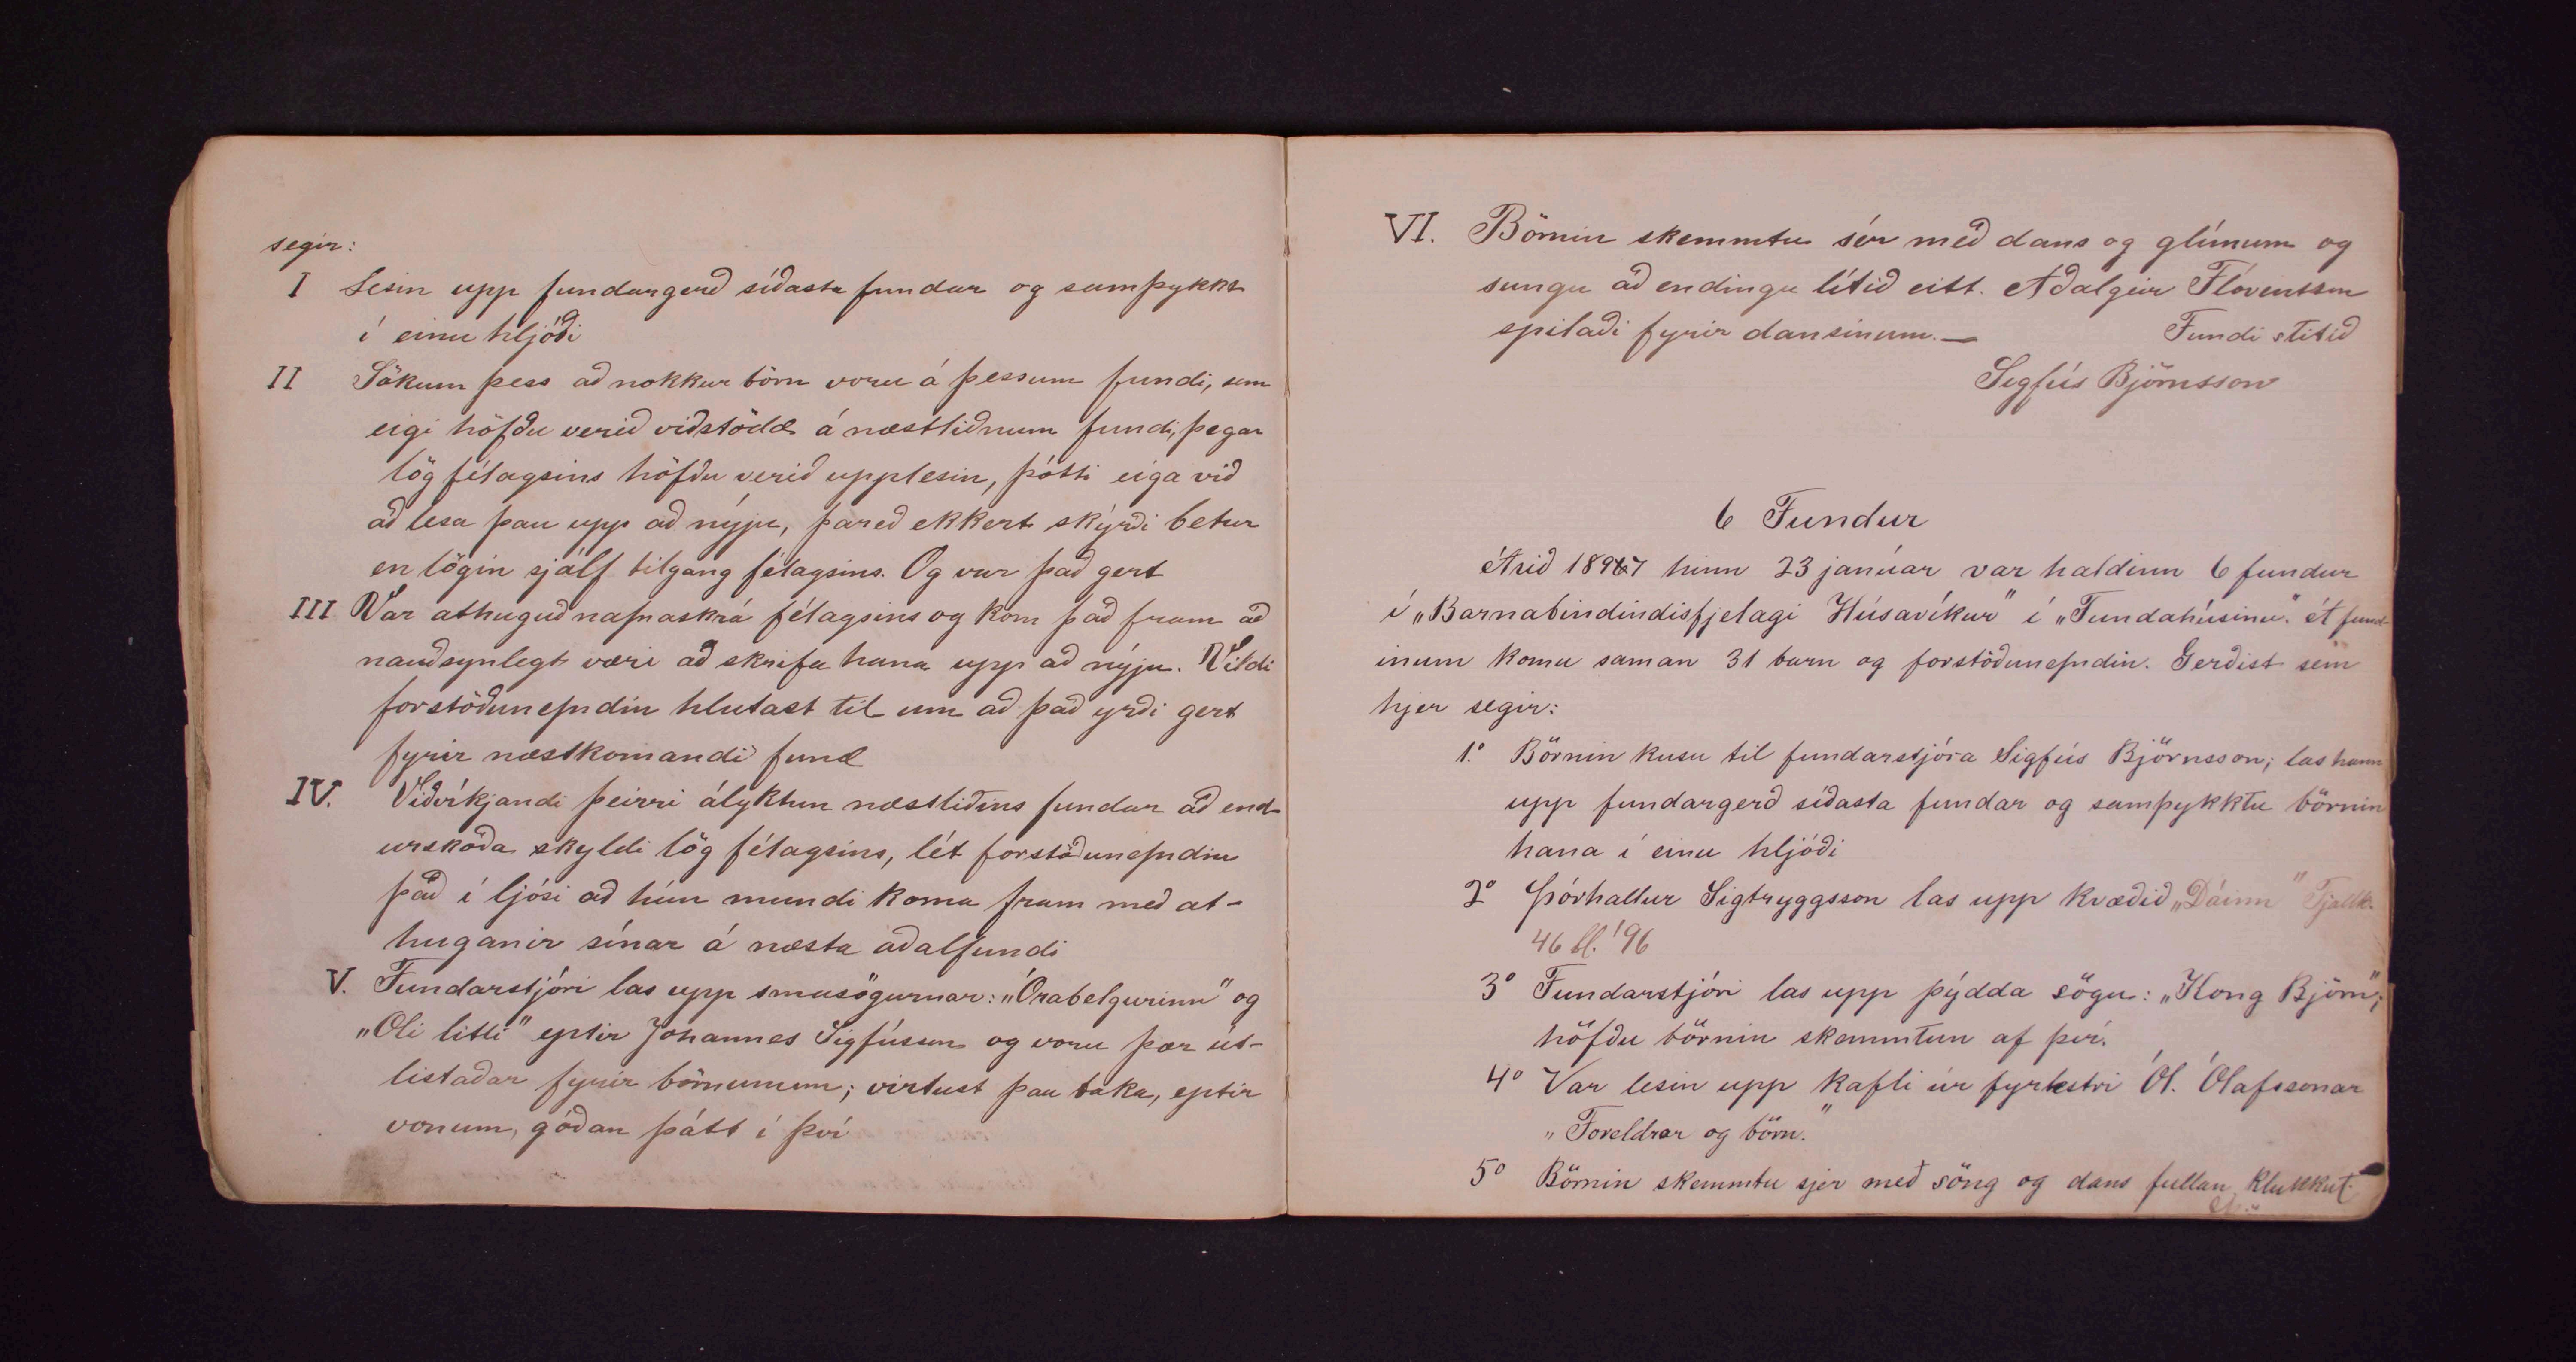 segir:
I Lesin upp fundargerð síðasta fundar og samþykkt
í einu hljóði
II Sökum þess að nokkur börn voru á þessum fundi, sem
eigi höfðu verið viðstödd á næstliðnum fundi, þegar
lög félagsins höfðu verið upplesin, þótti eiga við
að lesa þau upp að nýju, þareð ekkert skýrði betur
en lögin sjálf tilgang félagsins. Og var það gert
III Var athuguð nafnaskrá félagsins og kom það fram að
nauðsynlegt væri að skrifa hana upp að nýju. Vildi
forstöðunefndin hlutast til um að það yrði gert
fyrir næstkomandi fund
IV. Viðvíkjandi þeirri ályktun næstliðins fundar að end-
urskoða skyldi lög félagsins, lét forstöðunefndin
það í ljósi að hún mundi koma fram með at-
huganir sínar á næsta aðalfundi
V. Fundarstjóri las upp smásögurnar: „Órabelgurinn" og
„Oli litli" eptir Jóhannes Sigfússon og voru þær út-
listaðar fyrir börnunum; virtust þau taka, eptir
vonum, góðan þátt í því
VI. Börnin skemmtu sér með dans og glímum og
sungu að endingu lítið eitt. Aðalgeir Flóventsson
spilaði fyrir dansinum. — Fundi slitið
Sigfús Björnsson
6 Fundur
Árið 1897 hinn 23 janúar var haldinn 6 fundur
í „Barnabindindisfjelagi Húsavíkur" í „Fundahúsinu". Á fund-
inum komu saman 31 barn og forstöðunefndin. Gerðist sem
hjer segir:
1.o Börnin kusu til fundarstjóra Sigfús Björnsson; las hann
upp fundargerð síðasta fundar og samþykktu börnin
hana í einu hljóði
2o Þórhallur Sigtryggsson las upp kvæðið „Dáinn" Fjallk.
46 bl. '96
3o Fundarstjóri las upp þýdda sögu: „Kong Björn";
höfðu börnin skemmtun af því.
4o Var lesin upp kafli úr fyrlestri Ól. Ólafssonar
„Foreldrar og börn."
5o Börnin skemmtu sjer með söng og dans fullan klukkut.